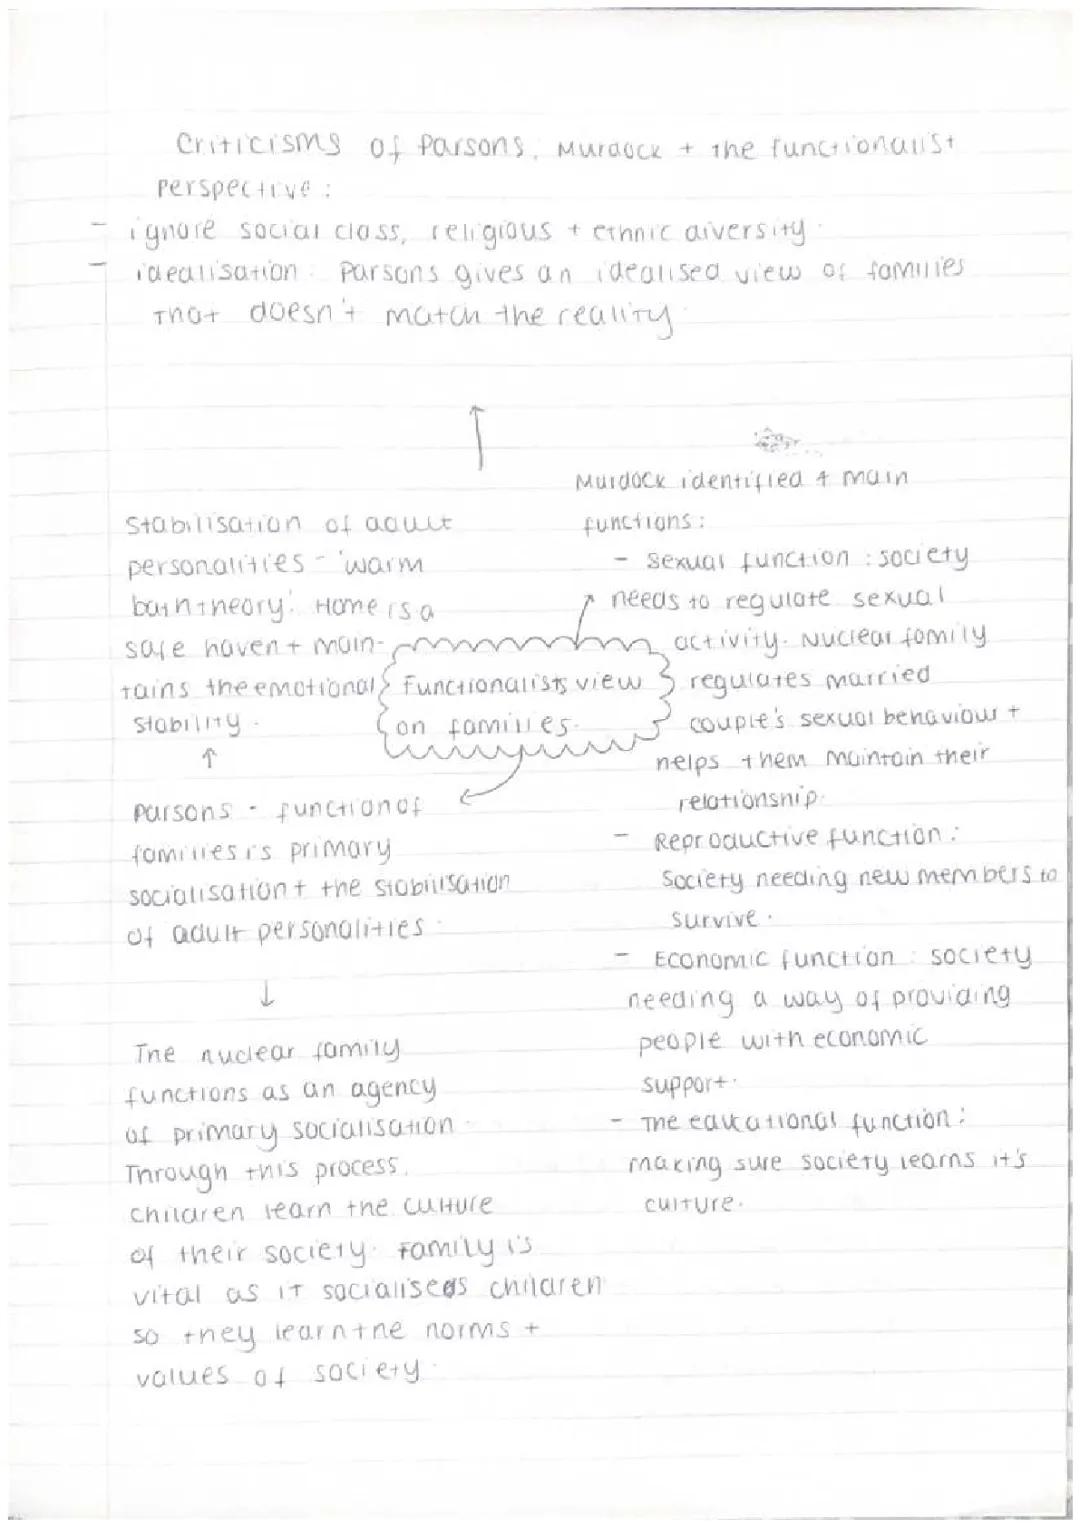 Criticisms of Parsons, Murdock + the functionalist
perspective :
- ignore social class, religious + ethnic diversity.
- idealisation : Parsons gives an idealised view of families
that doesn't match the reality.
Stabilisation of adult
personalities - 'warm
bath theory'. Home is a
safe haven + main-
tains the emotional
stability.
Functionalists view
on families.
Parsons - function of
families is primary
socialisation + the stabilisation
of adult personalities.
The nuclear family
functions as an agency
of primary socialisation.
Through this process,
children learn the culture
of their society. Family is
vital as it socialises children
so they learn the norms +
values of society.
Murdock identified 4 main
functions :
- sexual function : society
needs to regulate sexual
activity. Nuclear family
regulates married
couple's sexual behaviour +
helps them maintain their
relationship.
- Reproductive function :
Society needing new members to
survive.
- Economic function : society
needing a way of providing
people with economic
support.
- The educational function :
making sure society learns it's
culture.